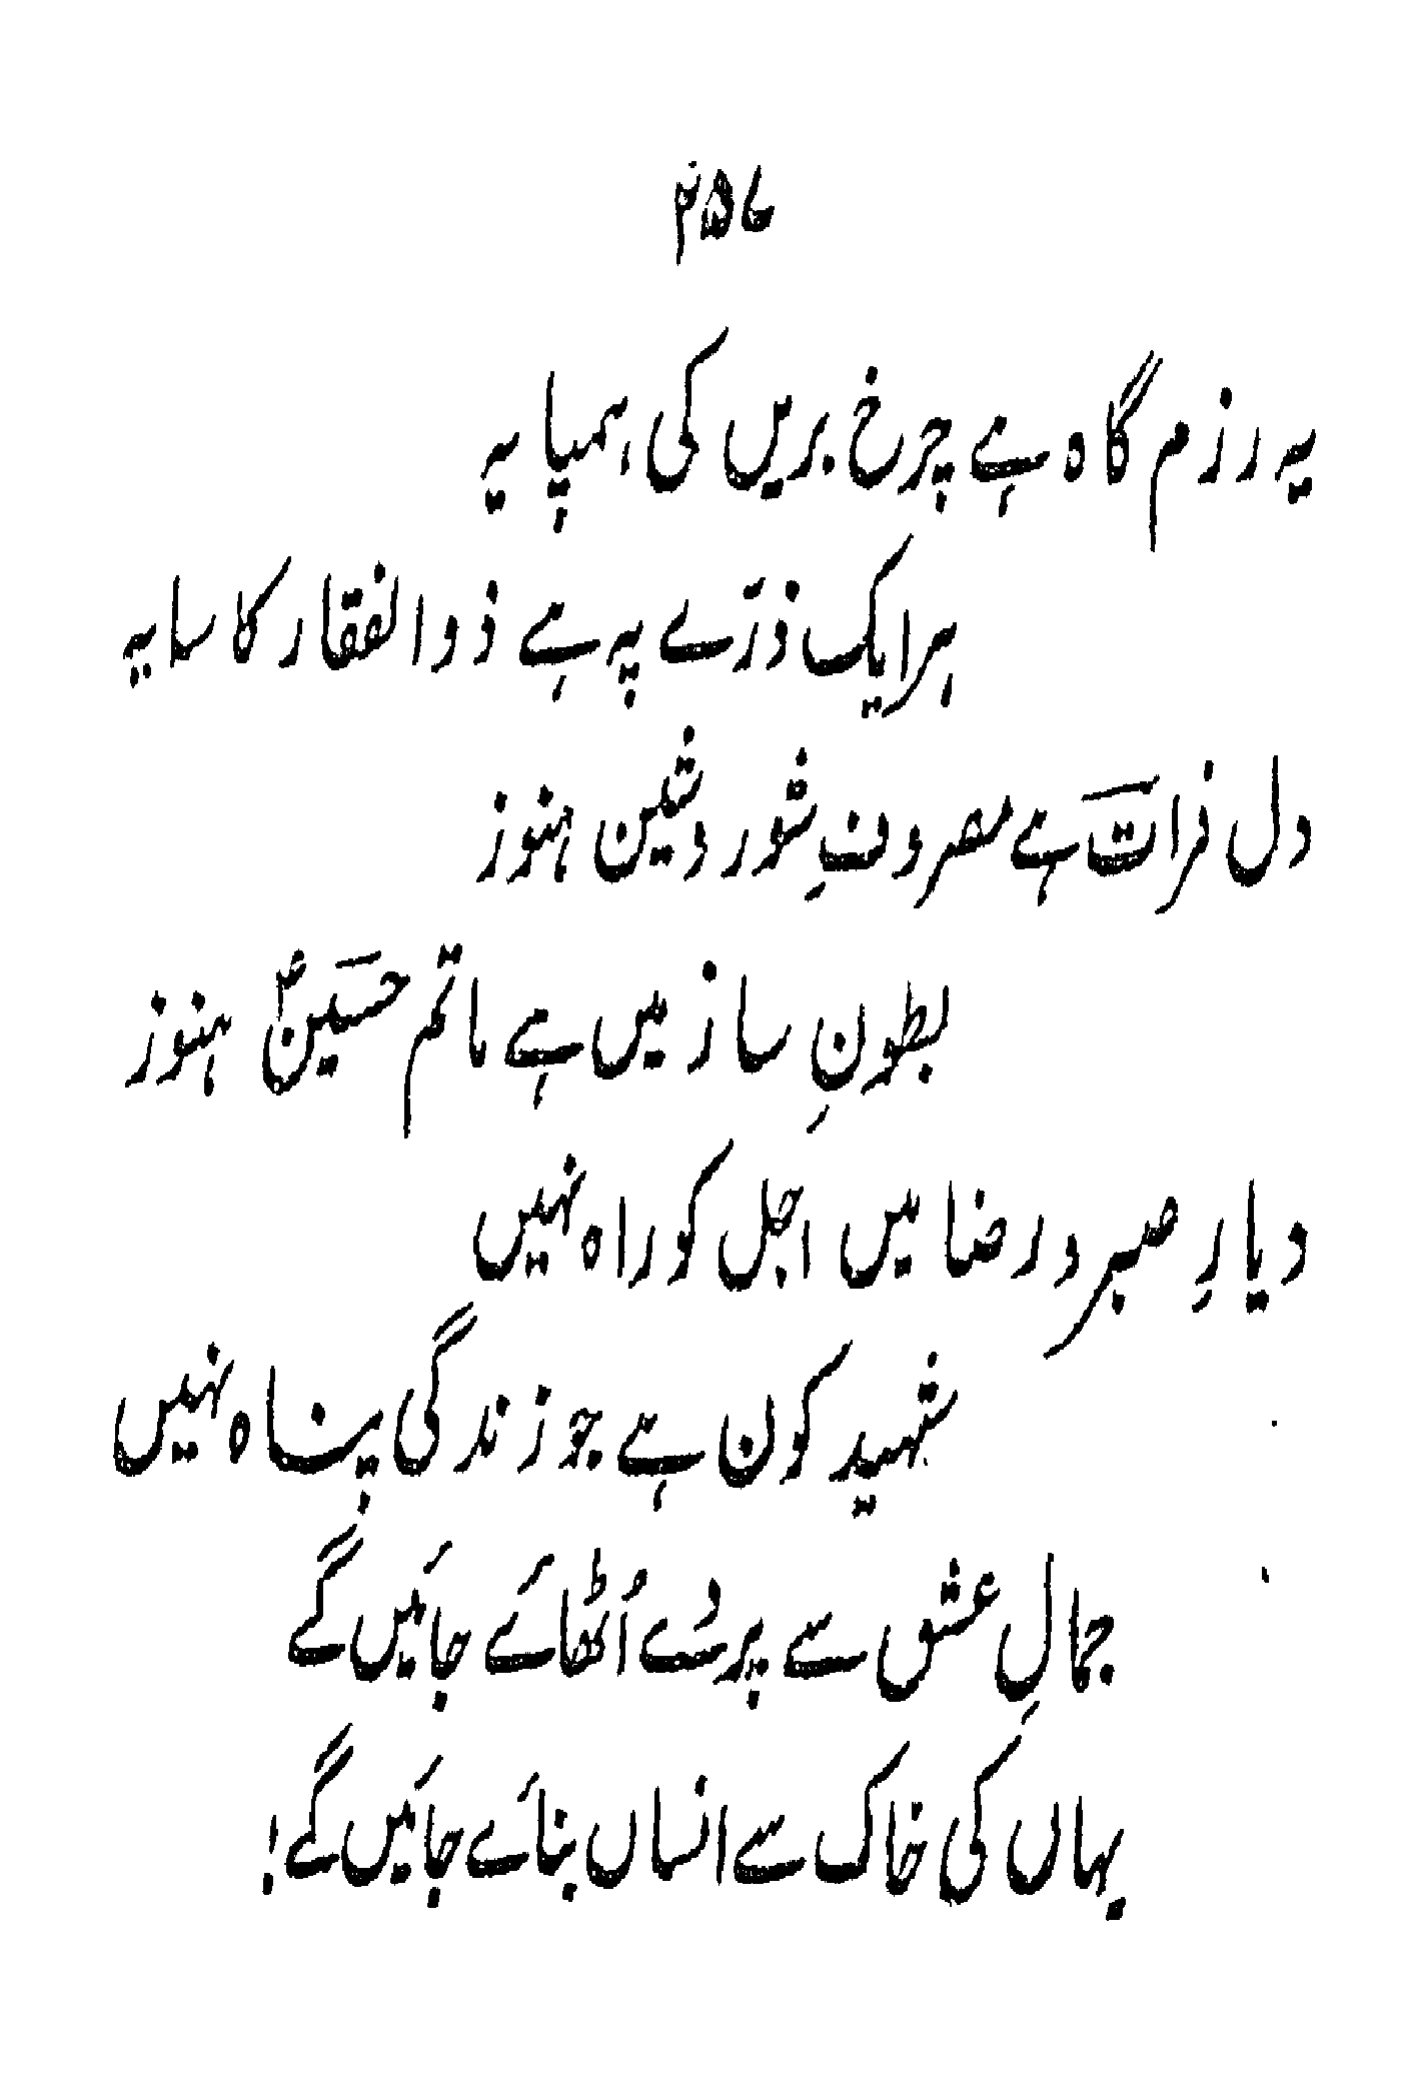 ۲۵۶
یہ رزم گاہ ہے چرخ بریں کی ہمپایہ
ہر ایک ذرّے پہ ہے ذوالفقار کا سایہ
دل فرات ہے مصروفِ شور و شین ہنوز
بطونِ ساز میں ہے ماتم حسینؑ ہنوز
دیارِ صبر و رضا میں اجل کو راہ نہیں
شہید کون ہے جو زندگی پناہ نہیں
جمالِ عشق سے پردے اُٹھائے جائیں گے
یہاں کی خاک سے انساں بنائے جائیں گے!